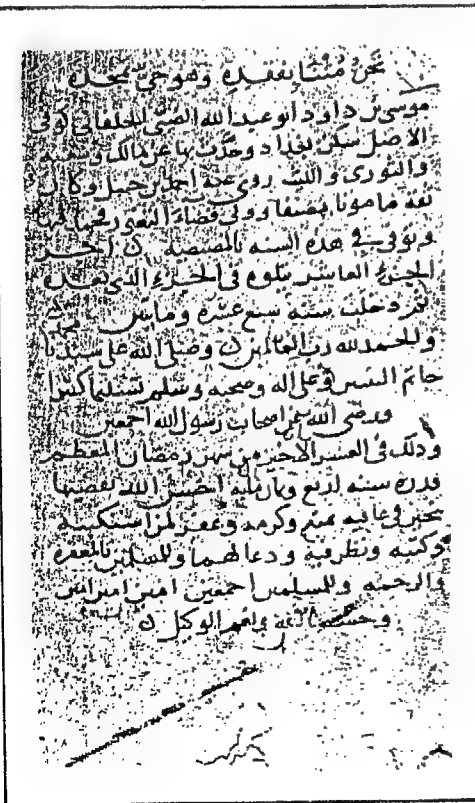 نحن متنا بفقده وهو حي بمجده
موسى بن داود ابو عبد الله الضبي الخلقاني كوفي
الاصل سكن بغداد وحدث بها عن مالك وشعبة
والثوري والليث روى عنه احمد بن حنبل وكان
ثقة مامونا مصنفا وولي قضاء الثغور فحمد فيها
وتوفي في هذه السنة بالمصيصة آخر
الجزء العاشر يتلوه في الجزء الذي بعده
ثم دخلت سنة سبع عشرة ومائتين
والحمد لله رب العالمين وصلى الله على سيدنا محمد
خاتم النبيين وعلى آله وصحبه وسلم تسليما كثيرا
ورضي الله عن اصحاب رسول الله اجمعين
وذلك في العشر الاخير من شهر رمضان المعظم
قدره سنة اربع وثمانمائة احسن الله تقضيها
بخير وعافية بمنه وكرمه وغفر لمن استكتبه
وكتبه ونظر فيه ودعا لهما وللمسلمين بالمغفرة
والرحمة وللمسلمين اجمعين امين امين امين
وحسبنا الله ونعم الوكيل